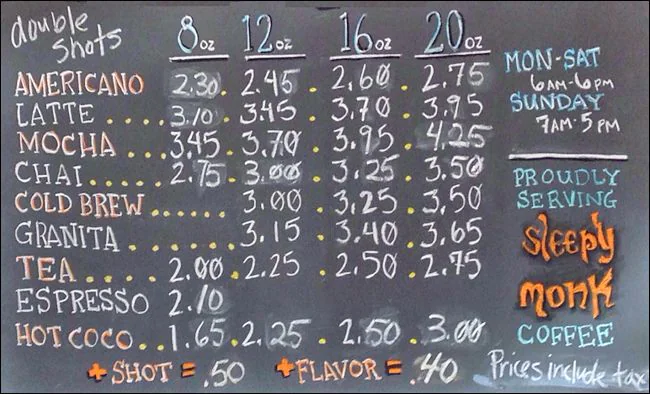 double shots 8oz 12oz 16oz 20oz
AMERICANO 2.30 . 2.45 . 2.60 . 2.75
LATTE .... 3.10 . 3.45 . 3.70 . 3.95
MOCHA .... 3.45 . 3.70 . 3.95 . 4.25
CHAI ...... 2.75 . 3.00 . 3.25 . 3.50
COLD BREW ...... 3.00 . 3.25 . 3.50
GRANITA ..... 3.15 . 3.40 . 3.65
TEA ..... 2.00 . 2.25 . 2.50 . 2.75
ESPRESSO 2.10
HOT COCO .. 1.65 . 2.25 . 2.50 . 3.00
+ SHOT = .50 + FLAVOR = .40
MON-SAT
6AM-6PM
SUNDAY
7AM-5PM
PROUDLY
SERVING
sleepy
monk
COFFEE
Prices include tax